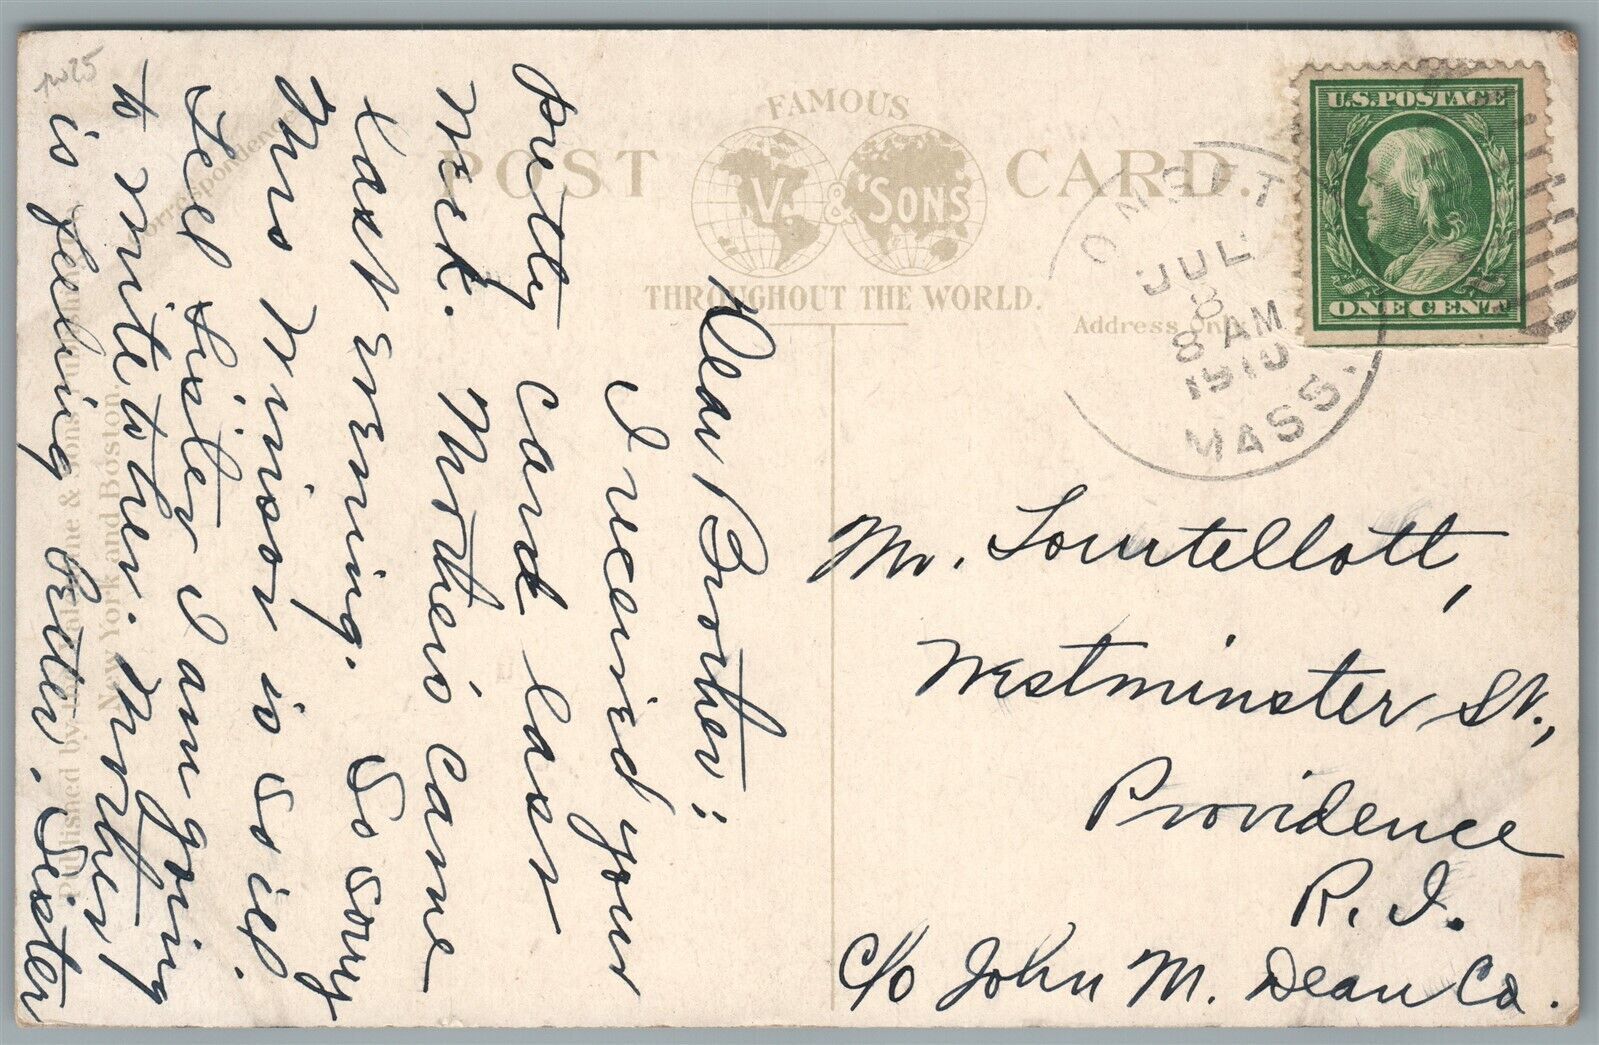 pw25
Correspondence
FAMOUS
POST CARD.
V. & SONS
THROUGHOUT THE WORLD.
Address Only
U.S. POSTAGE
ONE CENT
ONSET
JUL
8
8 AM
1910
MASS.
Dear Brother:
I received your
pretty card last
week. Mother's came
last evening. So sorry
Mrs Vinson is so ill.
Tell Sister I am going
to write to her. Mother
is feeling better. Sister
Mr. Tourtellott,
Westminster St.,
Providence
R. I.
c/o John M. Dean Co.
Published by & Sons
New York and Boston.